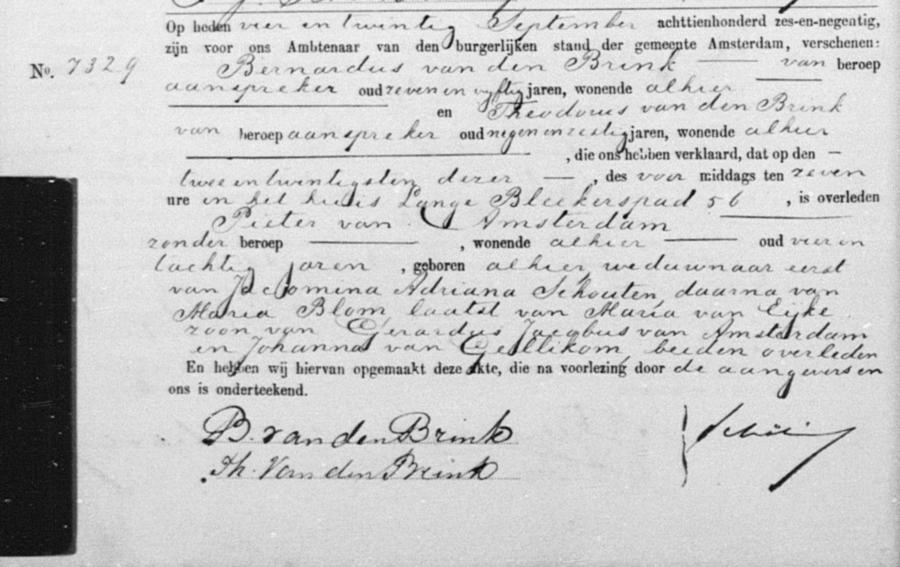 Op heden vier en twintig September achttienhonderd zes-en-negentig,
zijn voor ons Ambtenaar van den burgerlijken stand der gemeente Amsterdam, verschenen:
No. 7329 Bernardus van den Brink van beroep
aanspreker oud zeven en vyftig jaren, wonende alhier
en Theodorus van den Brink
van beroep aanspreker oud negen en zestig jaren, wonende alhier
, die ons hebben verklaard, dat op den
twee en twintigsten dezer , des voor middags ten zeven
ure in het huis Lange Bleekerspad 56 , is overleden
Pieter van Amsterdam
zonder beroep , wonende alhier oud vier en
tachtig jaren , geboren alhier weduwnaar eerst
van Adriana Schouten, daarna van
Maria Blom, laatst van Maria van Eijke
zoon van Gerardus Jacobus van Amsterdam
en Johanna van Gellikom, beiden overleden
En hebben wij hiervan opgemaakt deze akte, die na voorlezing door de aangevers en
ons is onderteekend.
B. van den Brink
Th. Van den Brink